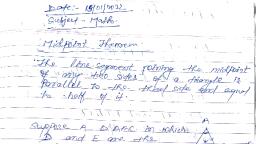 Date:- 19/01/2022
Subject - Maths.
Midpoint Theorem
The line segment joining the midpoint
of any two sides of a triangle is
parallel to the third side and equal
to half of it.
Suppose A is ABC in which
D and E are the
A